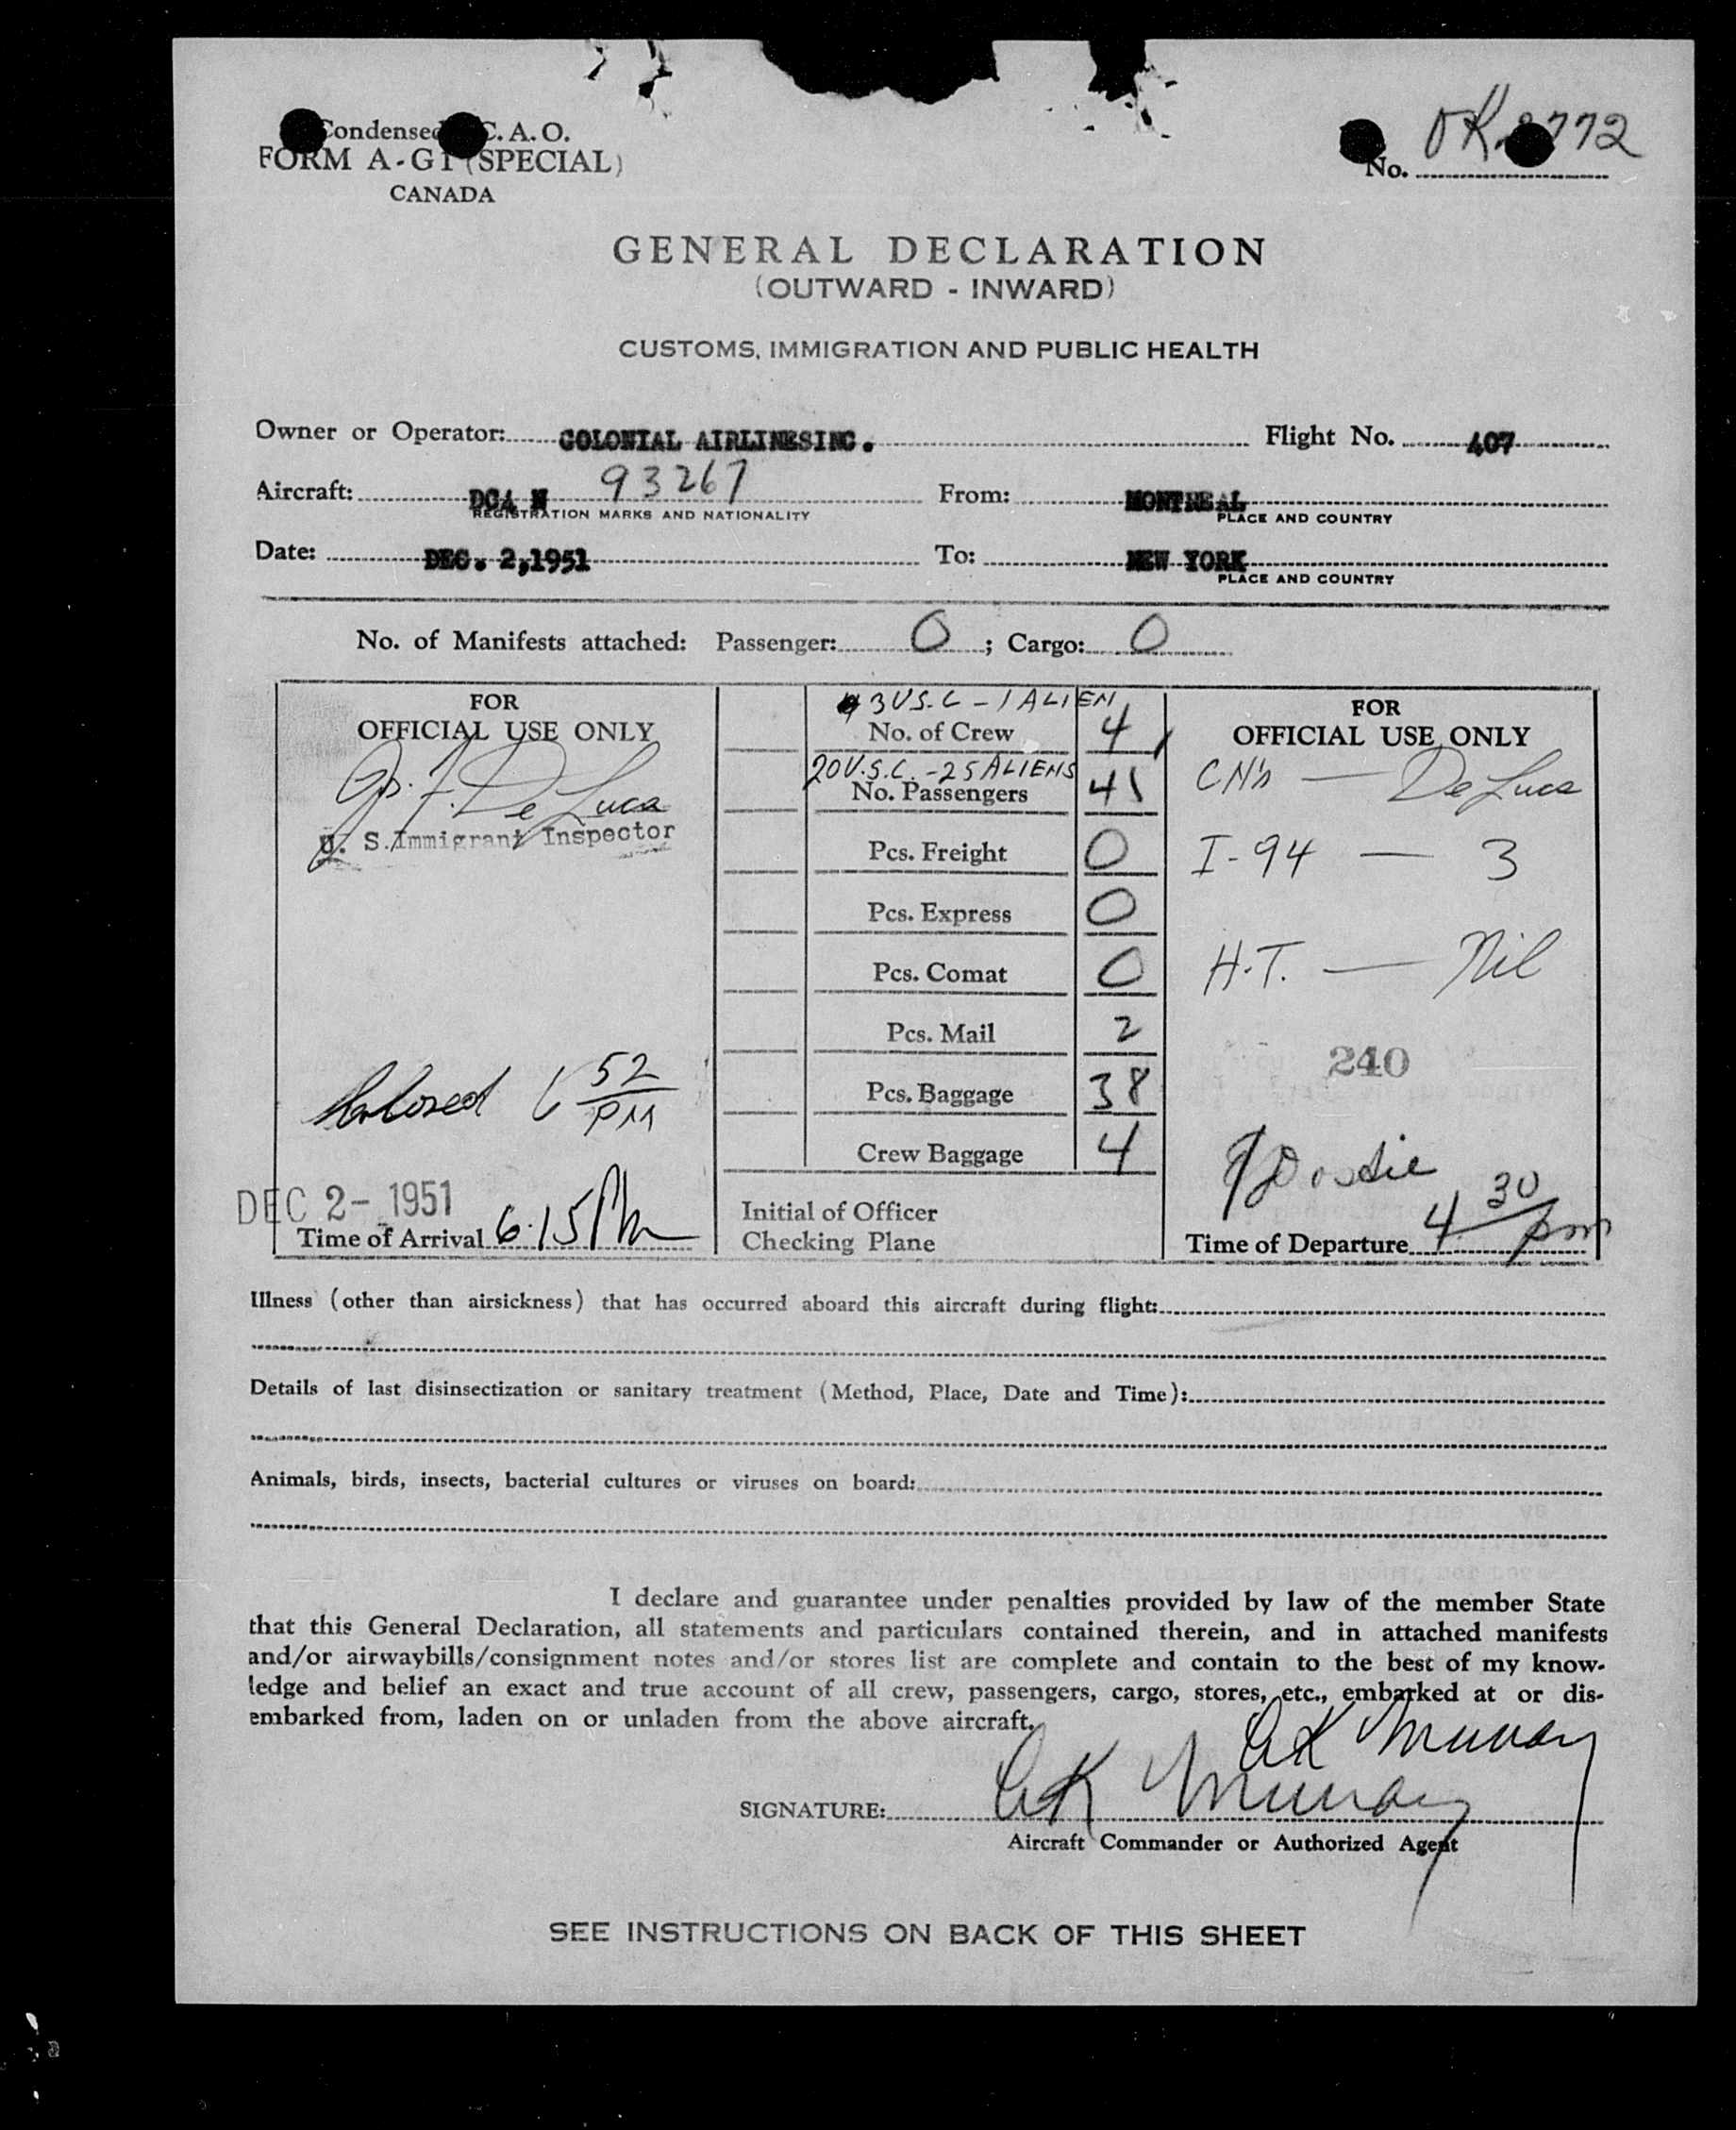 Condensed C. A. O.
FORM A-G1 (SPECIAL)
CANADA
No. OK 772
GENERAL DECLARATION
(OUTWARD - INWARD)
CUSTOMS, IMMIGRATION AND PUBLIC HEALTH
Owner or Operator: COLONIAL AIRLINESINC. Flight No. 407
Aircraft: DC4 N 93267 From: MONTREAL
REGISTRATION MARKS AND NATIONALITY PLACE AND COUNTRY
Date: DEC. 2,1951 To: NEW YORK
PLACE AND COUNTRY
No. of Manifests attached: Passenger: 0 ; Cargo: 0
FOR
OFFICIAL USE ONLY
De Luca
U. S. Immigrant Inspector
6 52
PM
DEC 2- 1951
Time of Arrival 6:15 Pm
3 U.S.C - 1 ALIEN
No. of Crew 4
20 U.S.C. - 25 ALIENS
No. Passengers 45
Pcs. Freight 0
Pcs. Express 0
Pcs. Comat 0
Pcs. Mail 2
Pcs. Baggage 38
Crew Baggage 4
Initial of Officer
Checking Plane
FOR
OFFICIAL USE ONLY
CN's — De Luca
I-94 — 3
H.T. — Nil
240
Time of Departure 4 30 pm
Illness (other than airsickness) that has occurred aboard this aircraft during flight:
Details of last disinsectization or sanitary treatment (Method, Place, Date and Time):
Animals, birds, insects, bacterial cultures or viruses on board:
I declare and guarantee under penalties provided by law of the member State
that this General Declaration, all statements and particulars contained therein, and in attached manifests
and/or airwaybills/consignment notes and/or stores list are complete and contain to the best of my know-
ledge and belief an exact and true account of all crew, passengers, cargo, stores, etc., embarked at or dis-
embarked from, laden on or unladen from the above aircraft.
CK Murray
SIGNATURE: CK Murray
Aircraft Commander or Authorized Agent
SEE INSTRUCTIONS ON BACK OF THIS SHEET